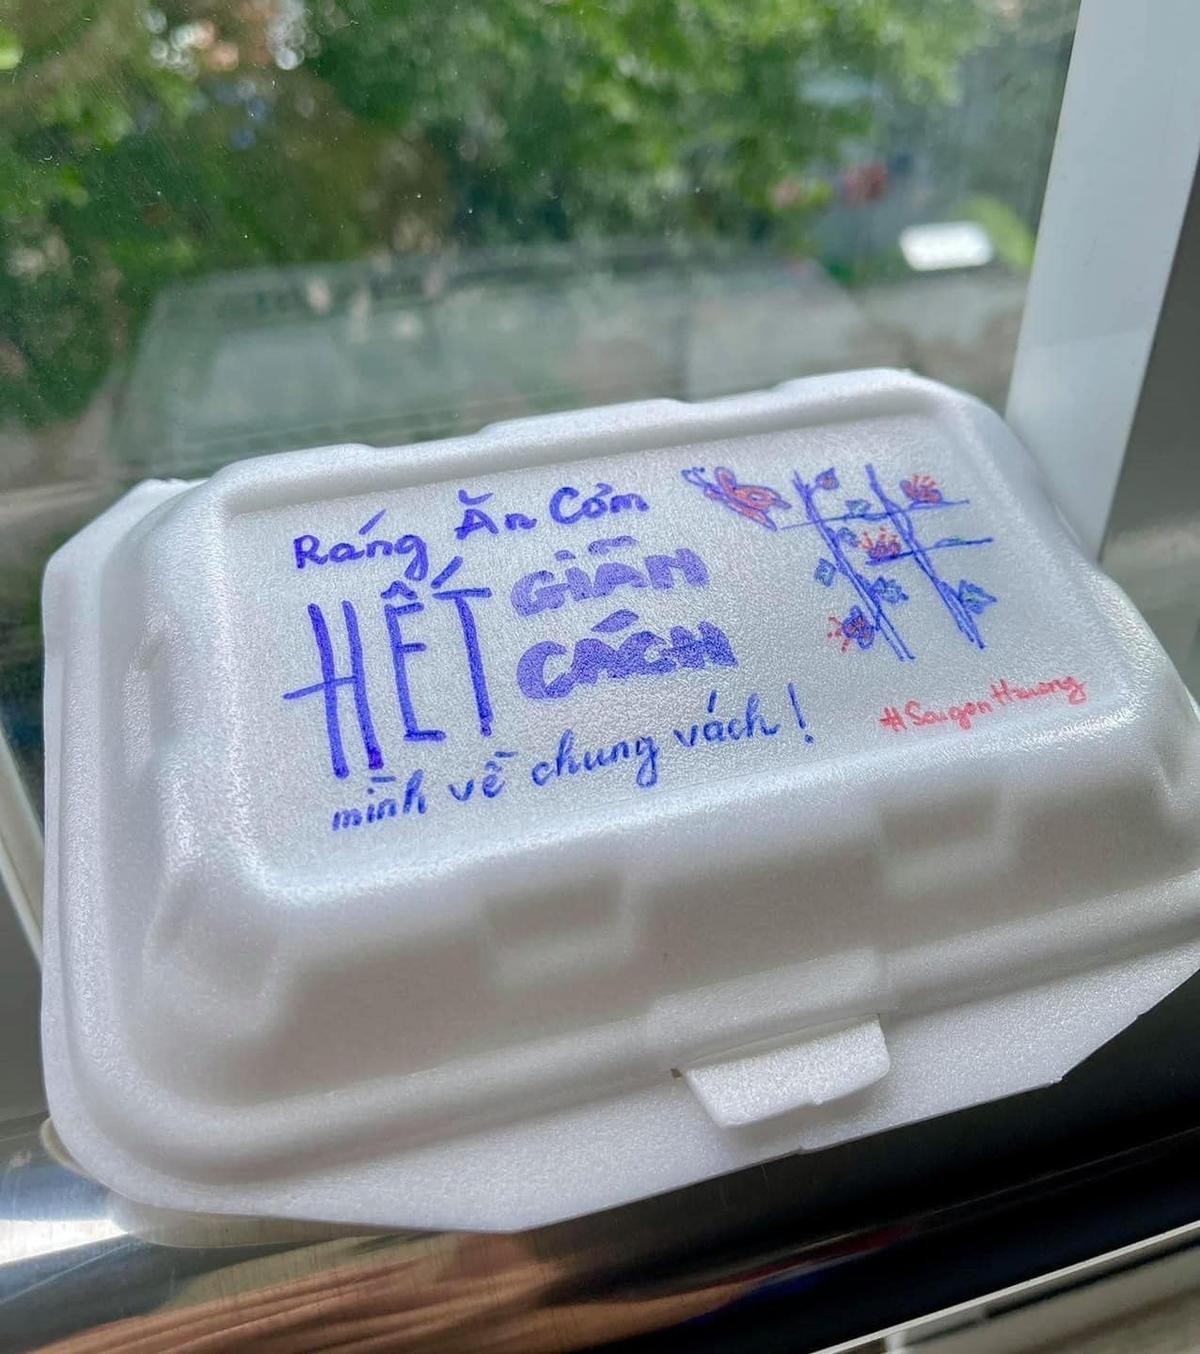 Ráng Ăn Cơm
HẾT GIÃN
CÁCH
mình về chung vách !
#SaigonHzuong